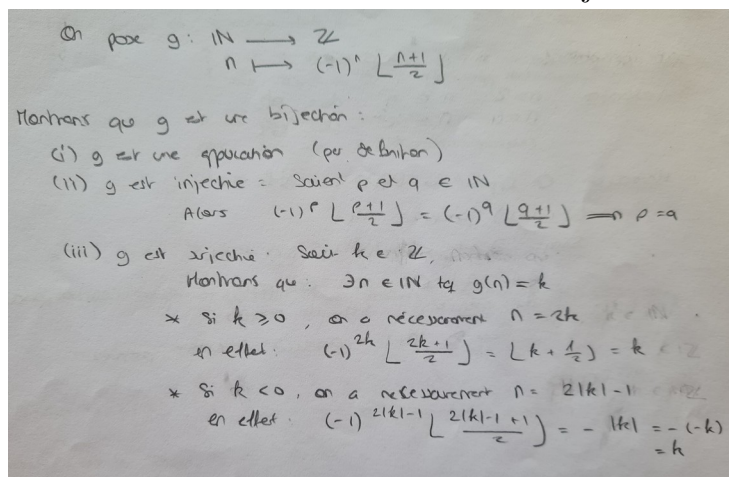 On pose g : ℕ ⟶ ℤ
n ⟼ (-1)ⁿ ⌊(n+1)/2⌋
Montrons que g est une bijection :
(i) g est une application (par definition)
(ii) g est injective : Soient p et q ∈ ℕ
Alors (-1)^p ⌊(p+1)/2⌋ = (-1)^q ⌊(q+1)/2⌋ ⟹ p = q
(iii) g est surjective. Soit k ∈ ℤ.
Montrons que : ∃n ∈ ℕ tq g(n) = k
* Si k ≥ 0, on a nécessairement n = 2k
en effet : (-1)^{2k} ⌊(2k+1)/2⌋ = ⌊k + 1/2⌋ = k
* Si k < 0, on a nécessairement n = 2|k|-1
en effet. (-1)^{2|k|-1} ⌊(2|k|-1+1)/2⌋ = - |k| = -(-k)
= k